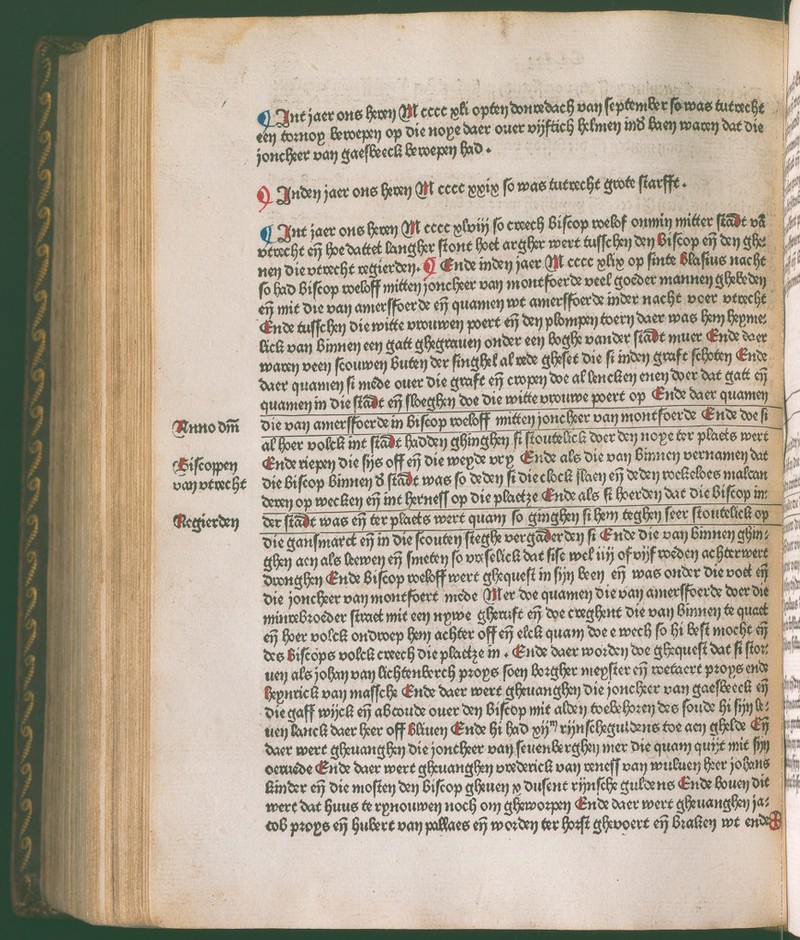 Int jaer ons heren M cccc xli opten donredach van september so was tutrecht
een tornoy beroepen op die noye daer ouer vijftich helmen inder baen waren dat die
joncheer van gaesbeeck beroepen had.
Inden jaer ons heren M cccc xxix so was tutrecht grote starfft.
Int jaer ons heren M cccc xlviij so creech biscop roelof onmin mitter stadt vā
vtrecht eñ hoe dattet langher stont hoet argher wert tusschen den Biscop eñ den ghe⸗
nen die vtrecht regierden. Ende inden jaer M cccc xlix op sinte Blasius nacht
so had biscop roeloff mitten joncheer van montfoerde veel goeder mannen ghebeden
eñ mit die van amersfoerde eñ quamen wt amersfoerde inder nacht voer vtrecht
Ende tusschen die witte vrouwen poert eñ den plompen toern daer was hem heyme⸗
lick van binnen een gatt ghegrauen onder een boghe vander stadt muer Ende daer
waren veen scouwen buten der singhel al rede gheset die si inden graft schoten Ende
daer quamen si mede ouer die graft eñ cropen doe al lencken enen doer dat gatt eñ
quamen in die stadt eñ sloeghen doe die witte vrouwe poert op Ende daer quamen
die van amersfoerde in biscop roeloff mitten joncheer van montfoerde Ende doe si
al hoer volck int stadt hadden ghinghen si stoutelick doer den noye ter plaets wert
Ende riepen die sijs off eñ die weyde vry Ende als die van binnen vernamen dat
die biscop binnen d̄ stadt was so deden si die clock slaen eñ deden roekeloes malcan
deren op wecken eñ int herness op die plaetze Ende als si hoerden dat die biscop in⸗
der stadt was eñ ter plaets wert quam so ginghen si hem teghen seer stoutelick op
die gansmarct eñ in die scouten steghe vergaderden si Ende die van binnen ghin⸗
ghen aen als leewen eñ smeten so vreselick dat sise wel iiij of vijf roeden achterwert
dronghen Ende Biscop roeloff wert ghequest in sijn been eñ was onder die voet eñ
die joncheer van montfoert mede Mer doe quamen die van amersfoerde doer die
minrebroeder straet mit een nywe gheruft eñ doe creghent die van binnen te quaet
eñ hoer volck ondroep hem achter off eñ elck quam doe e wech so hi best mocht eñ
des Biscops volck creech die plaetze in. Ende daer worden doe ghequest dat si stor⸗
uen als johan van lichtenberch proys soen borgher meyster eñ roetaert proys ende
heynrick van massche Ende daer wert gheuanghen die joncheer van gaesbeeck eñ
die gaff wijck eñ abcoude ouer den biscop mit alden toebehoren des soude hi sijn le⸗
uen lanck daer heer off bliuen Ende hi had xijᵐ rijnscheguldens toe aen ghelde Eñ
daer wert gheuanghen die joncheer van seuenberghen mer die quam quijt mit sijn
oeruede Ende daer wert gheuanghen vrederick van reneff van wuluen heer johans
kinder eñ die mosten den biscop gheuen x dusent rijnsche guldens Ende bouen dit
wert dat huus te rynouwen noch om gheworpen Ende daer wert gheuanghen ja⸗
cob proys eñ hubert van pallaes eñ worden ter horst ghevoert eñ braken wt ende
Anno dm̄
Biscoppen
van vtrecht
Regierden